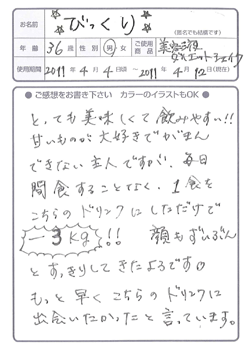 お名前 びっくり
(匿名でも結構です)
年齢 36歳 性別 男・女 ご使用商品 美容
ダイエットシェイク
使用期間 2011年4月4日〜2011年4月12日(現在)
●ご感想をお書き下さい カラーのイラストもOK●
とっても美味しくて飲みやすい!!
甘いものが大好きでがまん
できない主人ですが、毎日
間食することなく、1食を
こちらのドリンクにしただけで
−3kg!! 顔もずいぶん
とすっきりしてきたようです。
もっと早くこちらのドリンクに
出会いたかったと言っています。